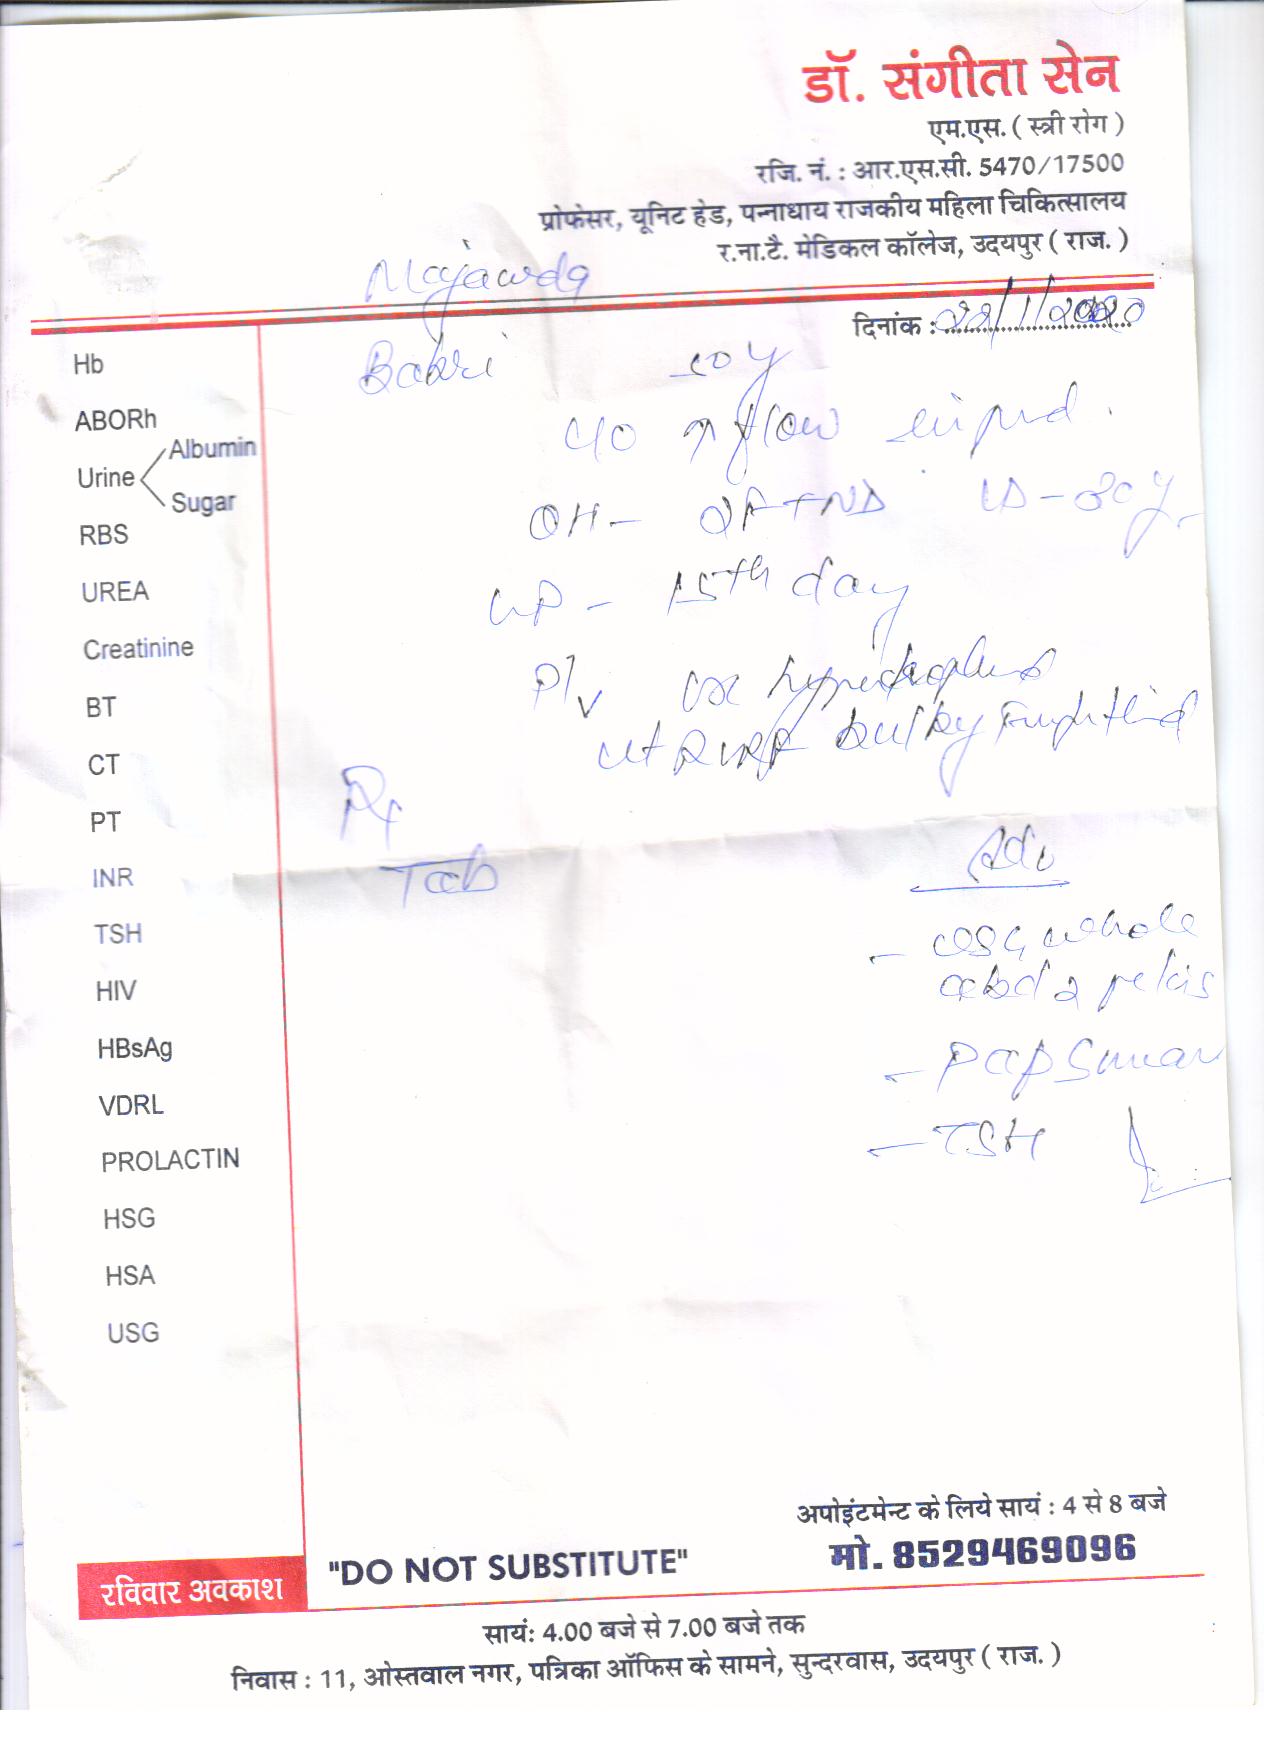 डॉ. संगीता सेन
एम.एस. ( स्त्री रोग )
रजि. नं. : आर.एस.सी. 5470/17500
प्रोफेसर, यूनिट हेड, पन्नाधाय राजकीय महिला चिकित्सालय
र.ना.टै. मेडिकल कॉलेज, उदयपुर ( राज. )
दिनांक : /1/2020
c/o ↑ flow
OH - 2FTND LD - 30y
LMP - 15th day
P/V cx hypertrophied
ut RVRF bulky
Rx
Tab
Adv
- USG whole
abd & pelvis
- Pap Smear
- TSH
Hb
ABORh
Urine Albumin
Sugar
RBS
UREA
Creatinine
BT
CT
PT
INR
TSH
HIV
HBsAg
VDRL
PROLACTIN
HSG
HSA
USG
अपोइंटमेन्ट के लिये सायं : 4 से 8 बजे
मो. 8529469096
"DO NOT SUBSTITUTE"
रविवार अवकाश
सायं: 4.00 बजे से 7.00 बजे तक
निवास : 11, ओस्तवाल नगर, पत्रिका ऑफिस के सामने, सुन्दरवास, उदयपुर ( राज. )